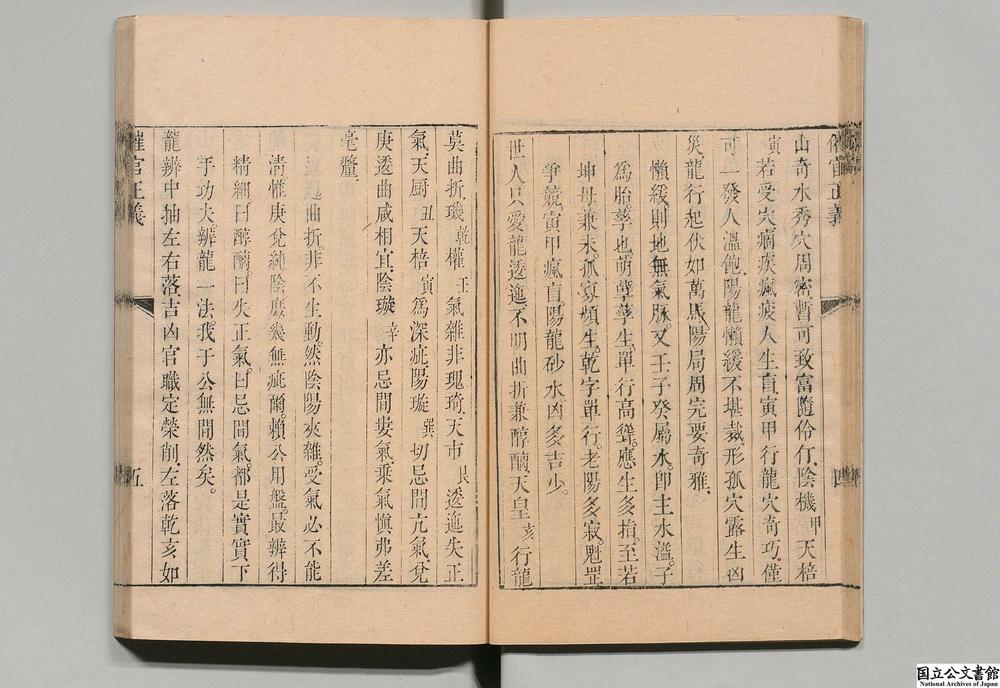 催官正義
四
山奇水秀穴周密暫可致富隨伶仃陰機甲天棓
寅若受穴痼疾瘋疲人生盲寅甲行龍穴奇巧僅
可一發人溫飽陽龍懶緩不堪裁形孤穴露生凶
災龍行起伏如萬馬陽局周完要奇雅
懶緩則地無氣脉又壬子癸屬水卽主水溢子
爲胎孳也萌孽孳生單行高聳應生多指至若
坤母兼未孤寡頻生乾字單行老陽多寂魁罡
爭競寅甲瘋盲陽龍砂水凶多吉少。
世人只愛龍逶迤不明曲折兼醇醨天皇亥行龍
莫曲折璣乾權壬氣雜非瑰琦天市艮逶迤失正
氣天厨丑天棓寅爲深疵陽璇巽切忌間亢氣兌
庚逶曲咸相宜陰璇辛亦忌間婁氣乘氣愼弗差
毫釐
逶迤曲折非不生動然陰陽夾雜受氣必不能
清惟庚兌純陰庶幾無疵爾賴公用盤最辨得
精細曰醇醨曰失正氣曰忌間氣都是實實下
手功夫辨龍一法我于公無間然矣。
龍辨中抽左右落吉凶官職定榮削左落乾亥如
催官正義
五
国立公文書館
National Archives of Japan